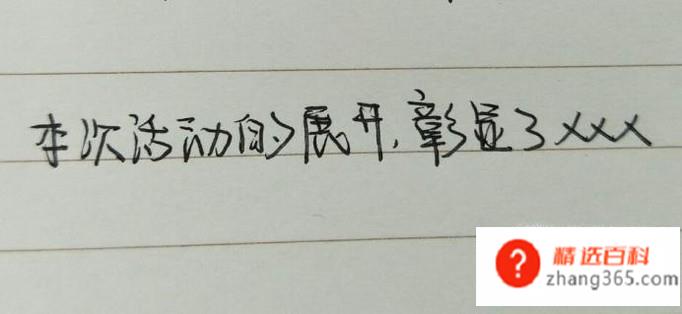 本次活动的展开,彰显了xxx
精选百科
zhang365.com